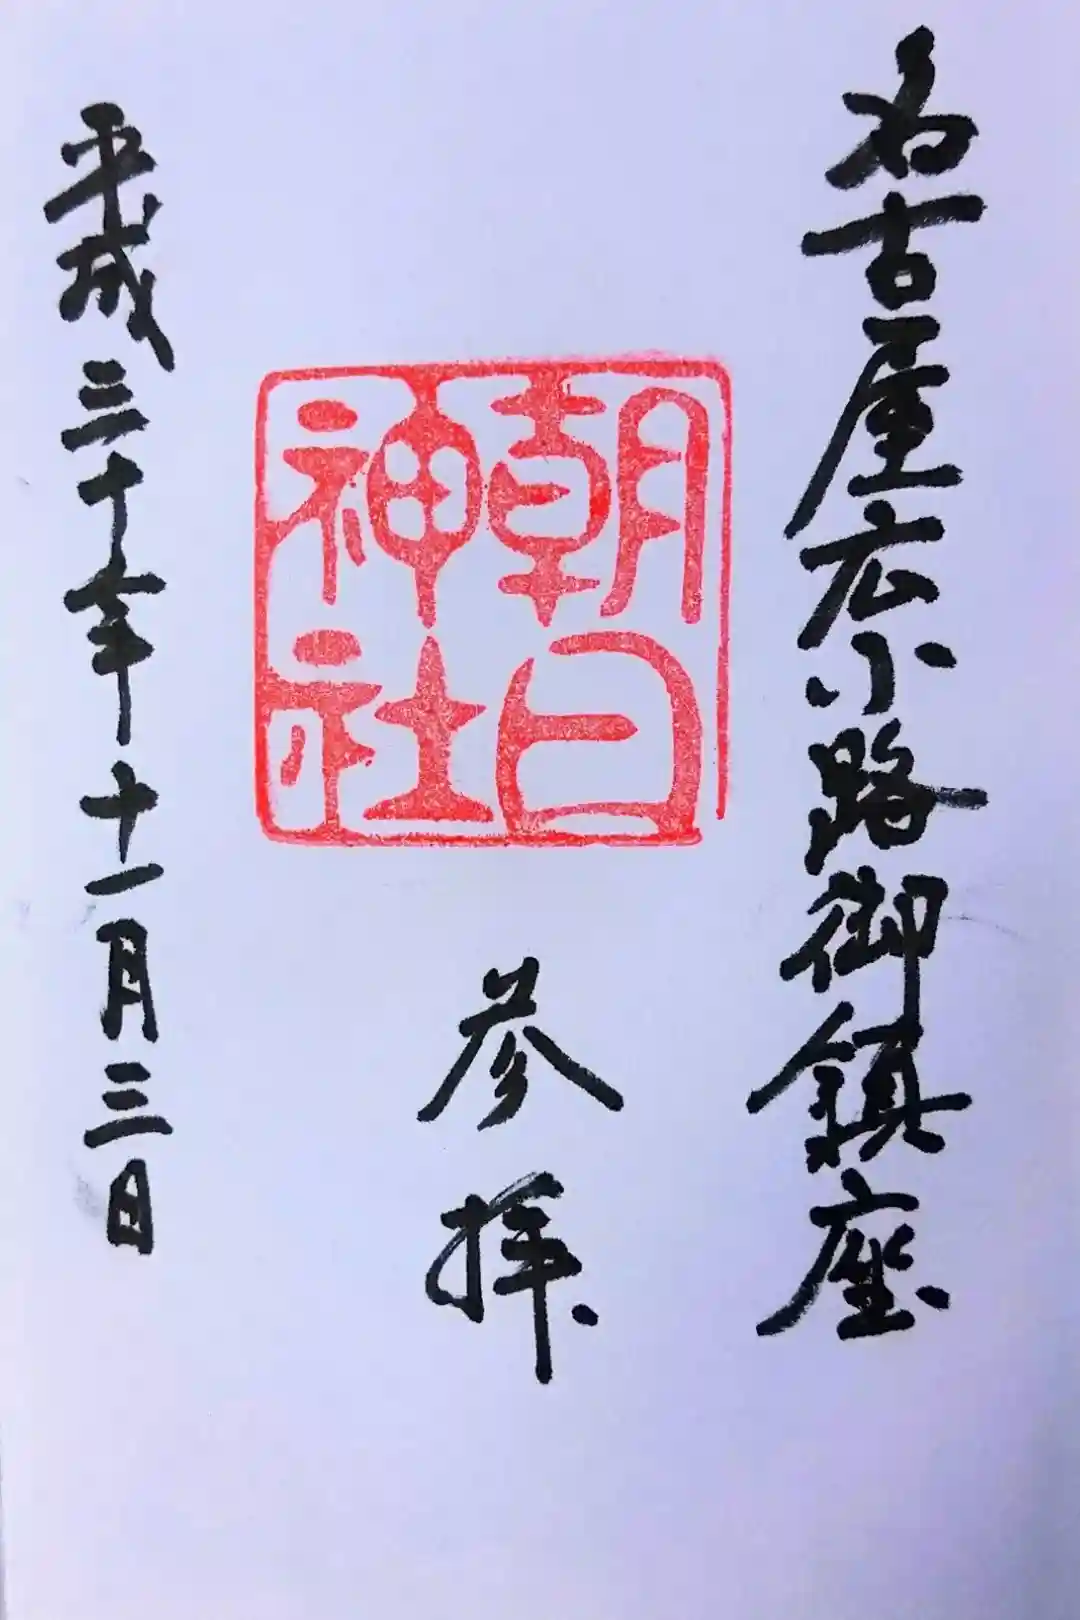 名古屋広小路御鎮座
朝日
神社
参拝
平成三十年十一月三日